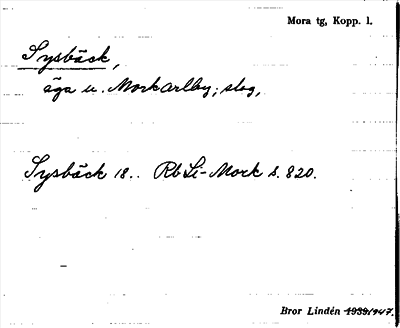 Mora tg, Kopp. l.
Sysbäck,
äga u. Morkarlby; slog,
Sysbäck 18.. Rb Li-Mork s. 820.
Bror Lindén 1939/1947.